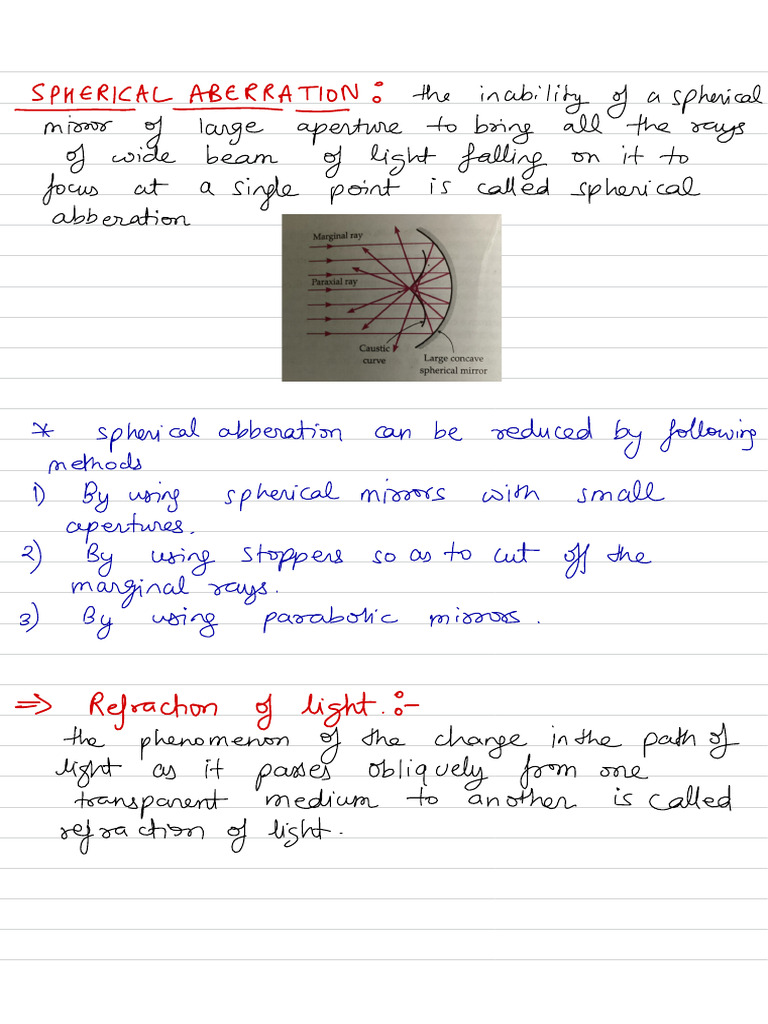 SPHERICAL ABERRATION : the inability of a spherical
mirror of large aperture to bring all the rays
of wide beam of light falling on it to
focus at a single point is called spherical
abberation
Marginal ray
Paraxial ray
Caustic
curve
Large concave
spherical mirror
* spherical abberation can be reduced by following
methods
1) By using spherical mirrors with small
apertures.
2) By using stoppers so as to cut off the
marginal rays.
3) By using parabolic mirrors.
⇒ Refraction of light. :-
the phenomenon of the change in the path of
light as it passes obliquely from one
transparent medium to another is called
refraction of light.